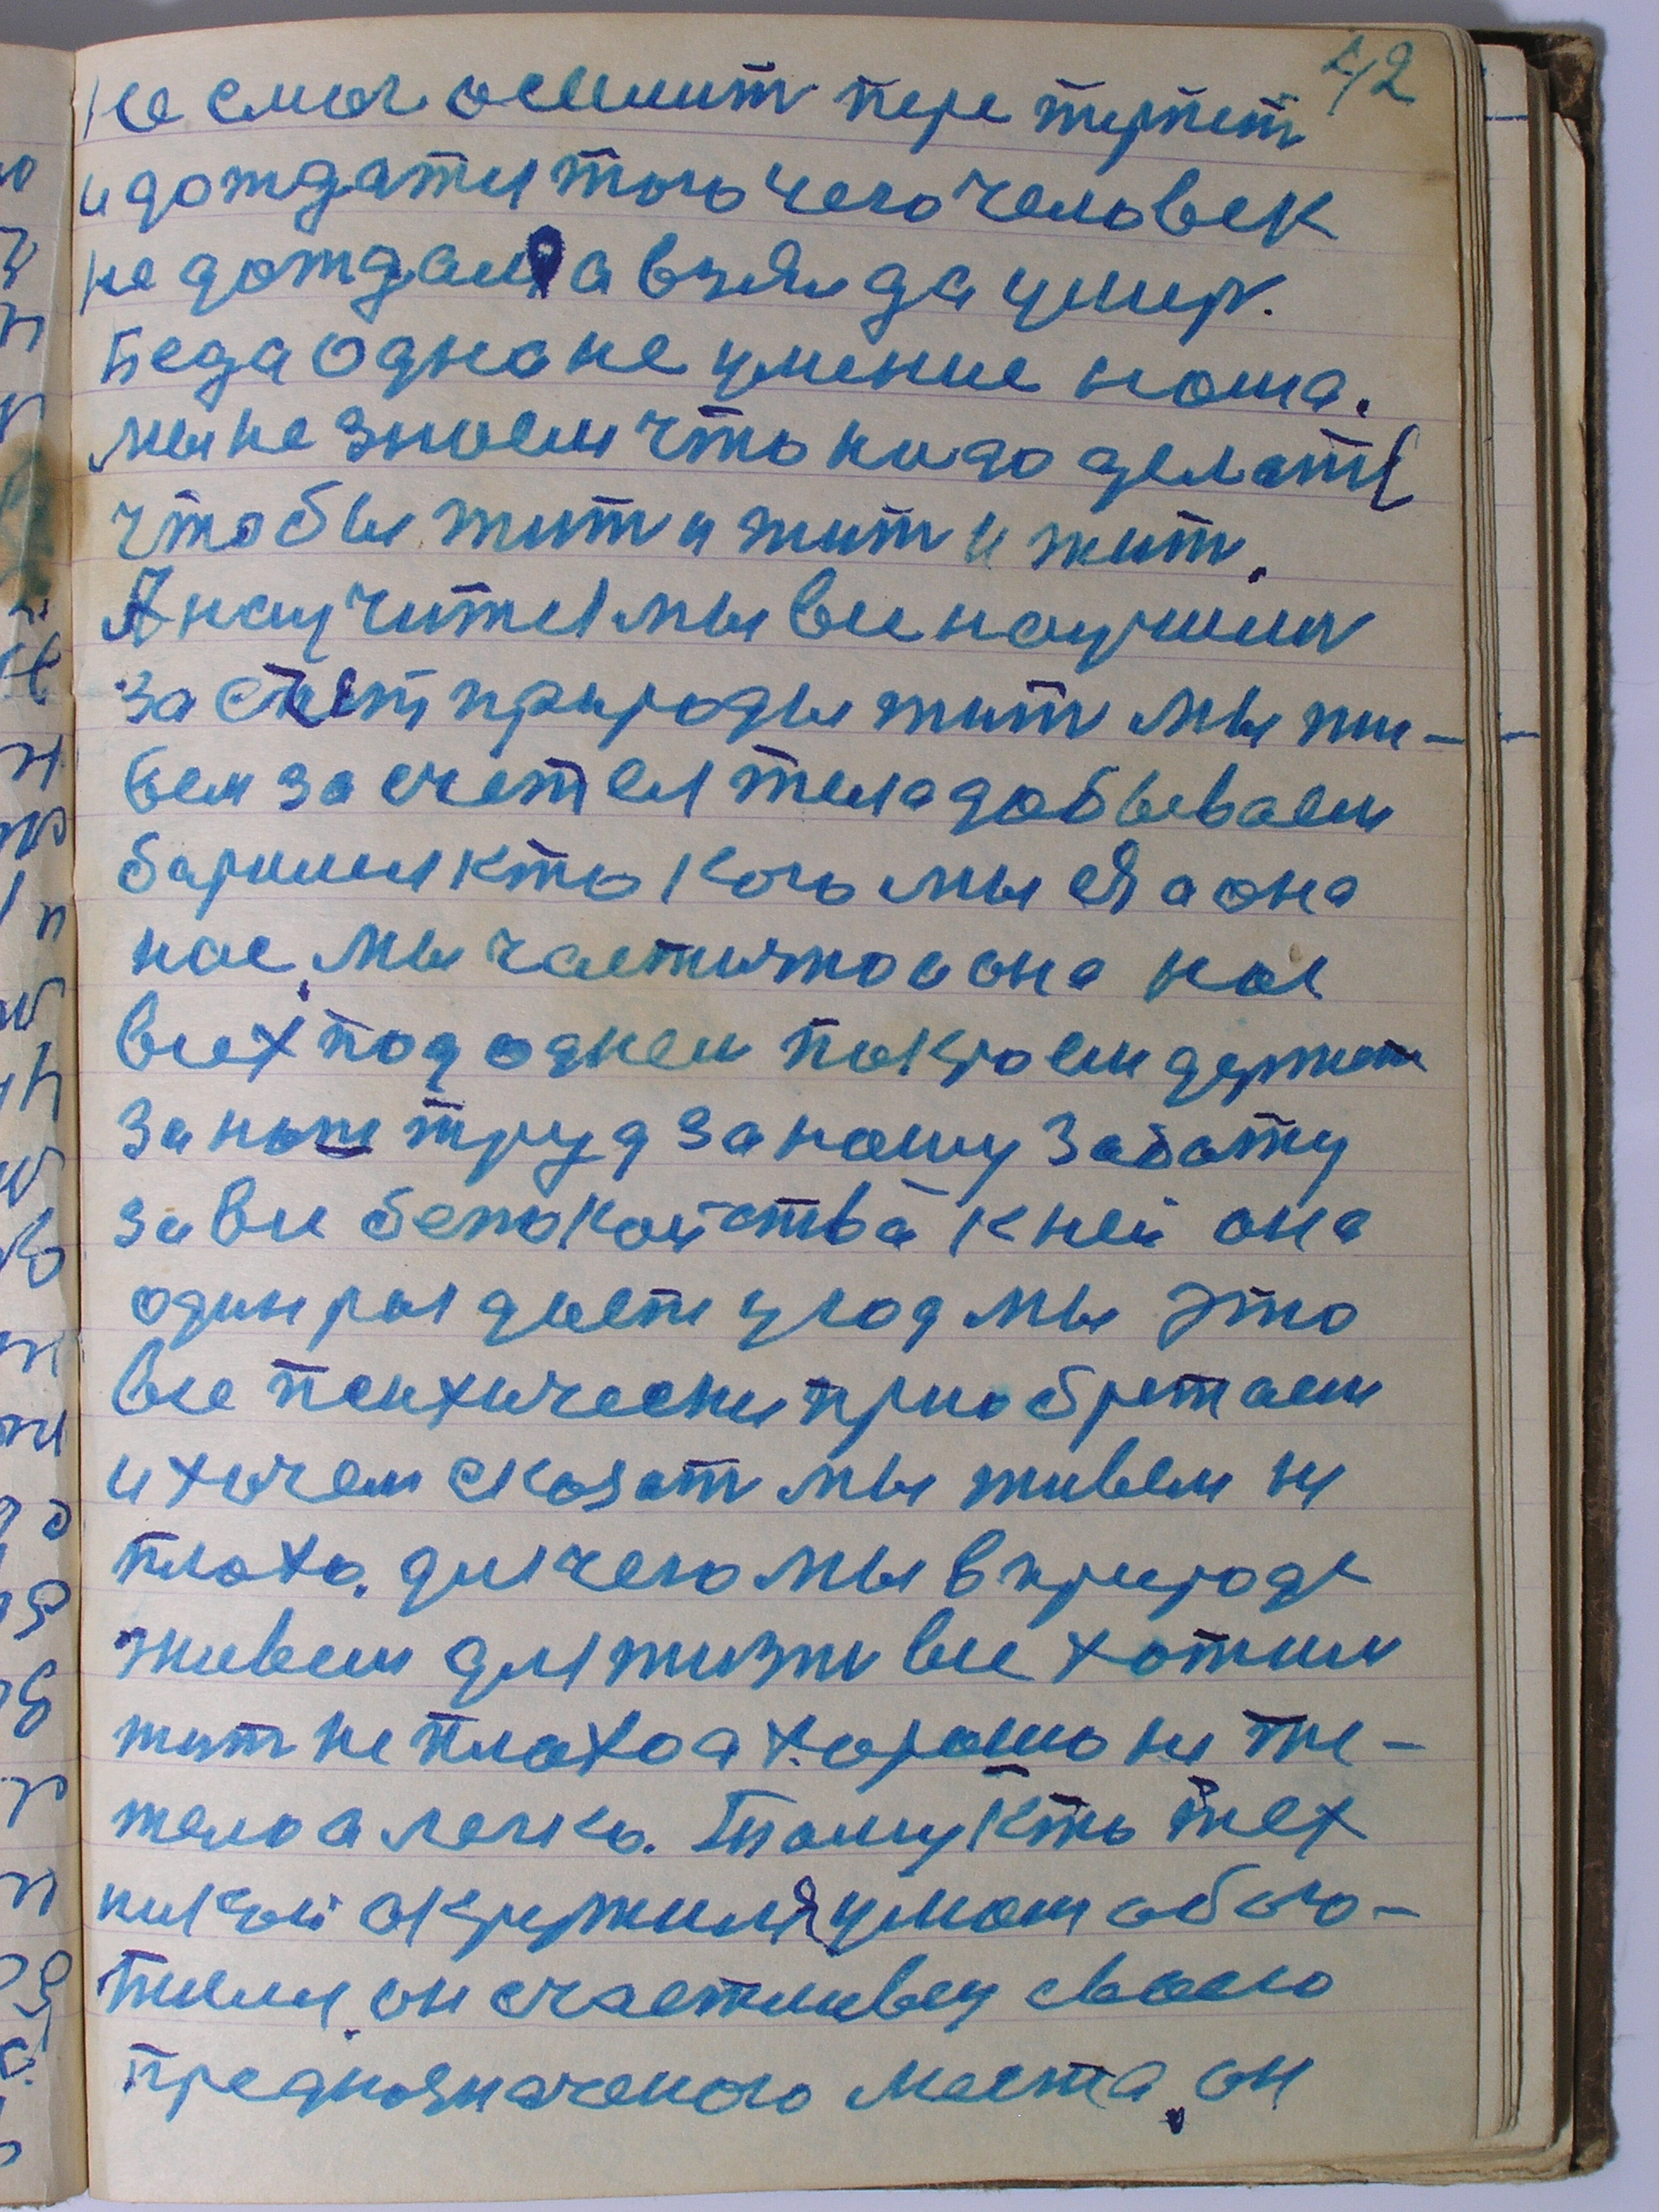 42
не смог осилит пере терпет
и дождатся того чего человек
не дождался а взял да умер.
беда одна не умение наша.
мы не знаем что надо делать
чтобы жит и жит и жит.
А научится мы все научилис
за счет природы жит мы пи-
ем за счет ея тела добываем
бариши кто кого мы ея а она
нас, мы частично а она нас
всех под однем покроем держит
за наш труд за нашу заботу
за все бепокойства к ней она
один раз дает у год мы это
все психически приобретаем
и хочем сказат мы живем не
плохо. для чего мы в природе
живем для жизни все хотим
жит не плохо а хорошо не тя-
жело а легко. Тому кто тех
никой окружился умом обога-
тился, он счастливец своего
предназначеного места, он